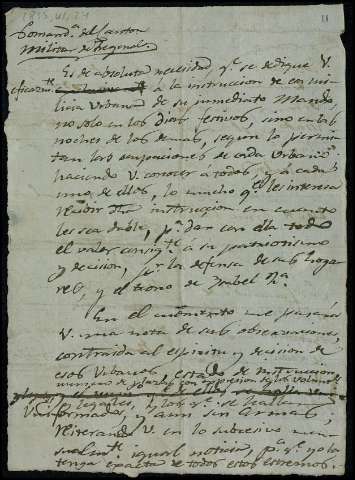 1835, VI, 21
11
Comand.ª del Canton
Militar de Regonal.
Es de absoluta necesidad q.e se dedique V.
eficazm.te a la instruccion de esa mi-
licia Urbana de su inmediato Mando,
no solo en los dias festivos, sino en las
noches de los demas, segun lo permi-
tan las ocupaciones de cada Urbano,
haciendo V. conocer a todos y a cada
uno de ellos, lo mucho q.e les interesa
recibir dha instruccion en cuanto
les sea dable, p.ª dar con ella todo
el valor consig.te a su patriotismo
y decision, p.r la defensa de sus hoga-
res, y el trono de Ysabel 2.ª
En el entretanto me pasará
V. una nota de sus observaciones,
contraida al espiritu y decision de
esos Urbanos, estado de instruccion
numero de plazas con expresion de los volunt.s
y legales, y los q.e se hallan
Uniformados y aun sin Armas,
reiterando V. en lo subcesivo men-
sualm.te igual noticia, p.ª q.e yo la
tenga exacta de todos estos estremos.